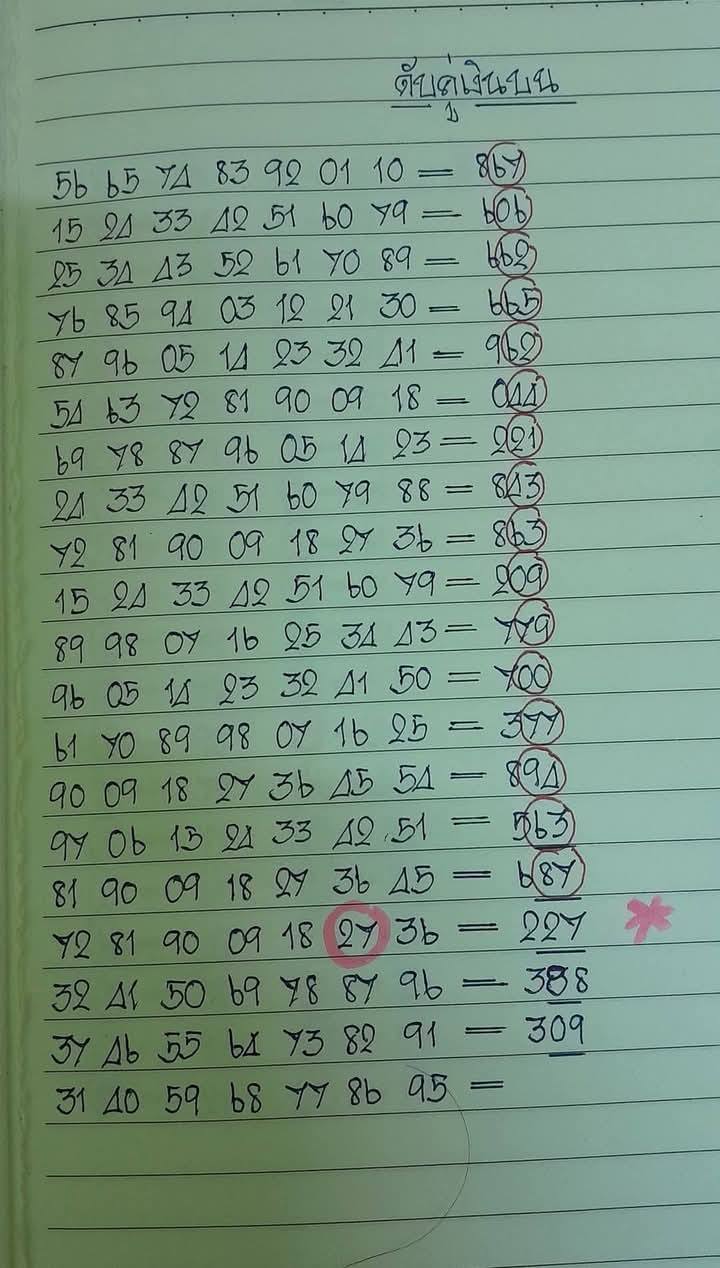 ดับคู่เงินบน
56 65 74 83 92 01 10 = 867
15 24 33 42 51 60 79 = 606
25 34 43 52 61 70 89 = 662
76 85 94 03 12 21 30 = 665
87 96 05 14 23 32 41 = 962
54 63 72 81 90 09 18 = 044
69 78 87 96 05 14 23 = 221
24 33 42 51 60 79 88 = 843
72 81 90 09 18 27 36 = 863
15 24 33 42 51 60 79 = 209
89 98 07 16 25 34 43 = 779
96 05 14 23 32 41 50 = 700
61 70 89 98 07 16 25 = 377
90 09 18 27 36 45 54 = 894
97 06 15 24 33 42 51 = 563
81 90 09 18 27 36 45 = 687
72 81 90 09 18 27 36 = 227 *
32 41 50 69 78 87 96 = 388
37 46 55 64 73 82 91 = 309
31 40 59 68 77 86 95 =